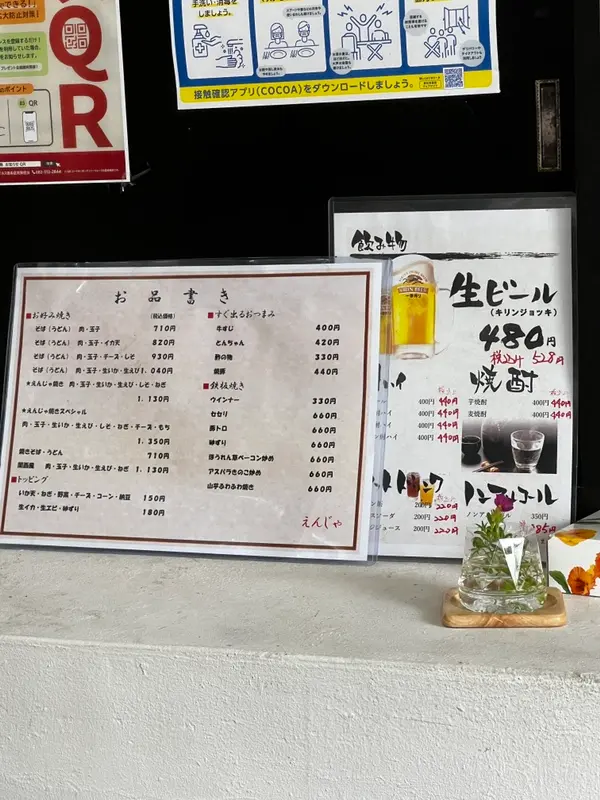 手洗い・消毒
をしましょう。
接触確認アプリ(COCOA)をダウンロードしましょう。
大防止対策!
QR
お品書き
■お好み焼き (税込価格)
そば(うどん) 肉・玉子 710円
そば(うどん) 肉・玉子・イカ天 820円
そば(うどん) 肉・玉子・チーズ・しそ 930円
そば(うどん) 肉・玉子・生いか・生えび 1.040円
★えんじゃ焼き 肉・玉子・生いか・生えび・しそ・ねぎ
1.130円
★えんじゃ焼きスペシャル
肉・玉子・生いか・生えび・しそ・ねぎ・チーズ・もち
1.350円
焼きそば・うどん 710円
関西風 肉・玉子・生いか・生えび・ねぎ 1.130円
■トッピング
いか天・ねぎ・野菜・チーズ・コーン・納豆 150円
生イカ・生エビ・砂ずり 180円
■すぐ出るおつまみ
牛すじ 400円
とんちゃん 420円
酢の物 330円
焼豚 440円
■鉄板焼き
ウインナー 330円
セセリ 660円
豚トロ 660円
砂ずり 660円
ほうれん草ベーコン炒め 660円
アスパラきのこ炒め 660円
山芋ふわふわ焼き 660円
えんじゃ
飲み物
生ビール
(キリンジョッキ)
480円
税込み 528円
ハイ
400円 440円
400円 440円
400円 440円
ハイ 400円 440円
焼酎
芋焼酎 400円 440円
麦焼酎 400円 440円
リンク
200円 220円
ソーダ 200円 220円
ジュース 200円 220円
ノンアルコール
ノンア 350円
385円